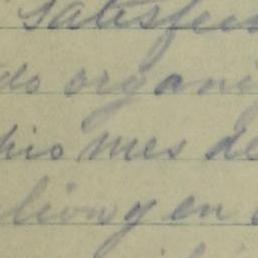 satisfec
do organi
pio mes de
lion y en